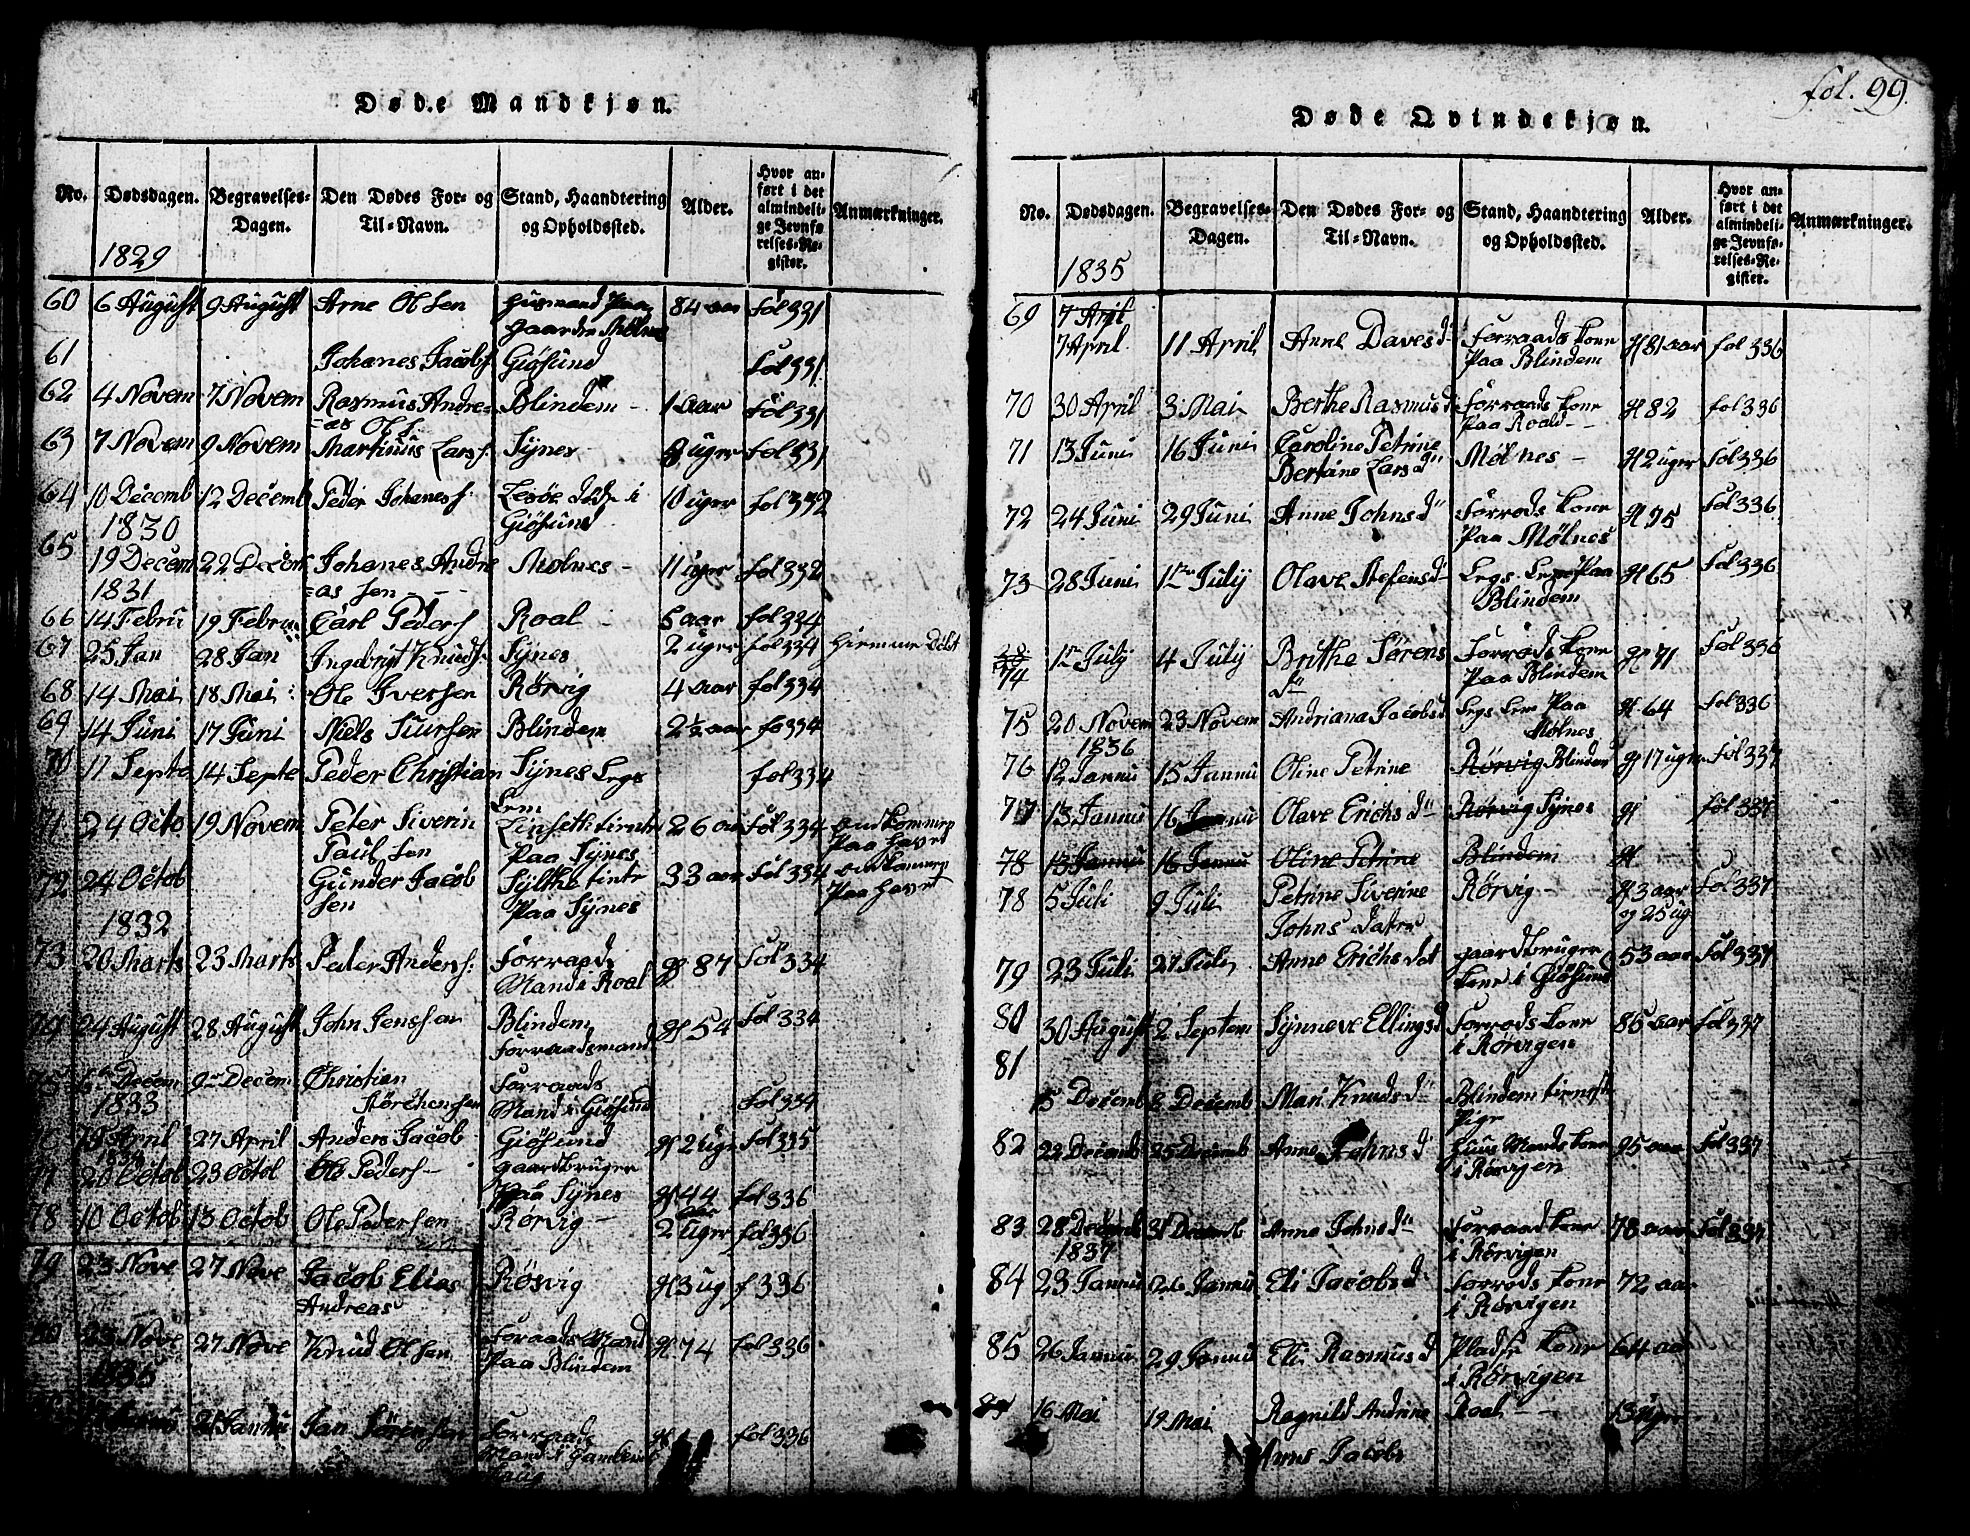 fol. 99.
Døde Mandkjøn.
No. Dødsdagen. Begravelses-Dagen. Den Dødes For- og Til-Navn. Stand, Haandtering og Opholdssted. Alder. Hvor anført i det almindelige Jevnførelses-Register. Anmærkninger.
1829
60 6 August 9 August Arne Olsen Husmand Paa 84 aar fol 331
gaarden Mölnes
61 Johanes Jacobs Giösund fol 331
62 4 Novem 7 Novem Rasmus Andre= Blindem - 1 aar fol 331
=as Ols
63 7 Novem 9 Novem Martinus Larss. Synes 8 uger fol 331
64 10 Decemb 12 Decemb Peder Johaness. Lesöe död i 10 uger fol 332
1830 Giösund
65 19 Decem 22 Decem Johanes Andre Molnes - 11 uger fol 332
1831 =as sen
66 14 Febru 19 Febru Carl Peders Roal - 5 aar fol 334
67 25 Jan 28 Jan Ingebrigt Knuds Synes 2 uger fol 334 Hiemme Döbt
68 14 Mai 18 Mai Ole Iversen Rörvig 4 aar fol 334
69 14 Juni 17 Juni Niels Siursen Blindem 2½ aar fo 334
70 11 Septe 14 Septe Peder Christian Synes Legs fol 334
Lem
71 24 Octo 19 Novem Peter Siverin 26 aar fol 334 omkommen
Paul sen Paa Synes Paa Havet
72 24 Octob Gunder Jacob 33 aar fol 334 omkommen
sen Paa Synes Paa Havet
1832
73 20 Marts 23 Marts Peder Anderss: Forraads gf 87 fol 334
Mand i Roal
24 August 28 August John Jenssen Blindem gf 54 fol 334
Forraadsmand
75 Decem 9 Decem Christian Forraads
1833 Mand i Giösund fol 334
19 April 27 April Anders Jacob Giösund gf 2 uger fol 335
1834
77 20 Octob 23 Octob Ole Peders - gaardbruger
Paa Synes gf 44 fol 336
78 10 Octob 13 Octob Ole Pedersen Rörvig - 2 uger fol 336
79 23 Nove 27 Nove Jacob Elias Rösvig gf 3 ug f 336
Andreas
23 Nove 27 Nove Knud Olsen Foraads Mand gf 74 fol 336
1835 Paa Blindem
21 Jannu Jan Sörensen Forraads gf fol 336
Mand i
Døde Qvindekjøn.
No. Dødsdagen. Begravelses-Dagen. Den Dødes For- og Til-Navn. Stand, Haandtering og Opholdssted. Alder. Hvor anført i det almindelige Jevnførelses-Register. Anmærkninger.
1835
69 7 April
7 April 11 April Anne Daves d Forraads kone gf 81 aar fol 336
Paa Blindem
70 30 April 3 Mai Berthe Rasmus d Forraads kone gf 82 fol 336
Paa Roald
71 13 Juni 16 Juni Caroline Petrine Mölnes - gf 2 uger fol 336
Bertine Lars d
72 24 Juni 29 Juni Anne Johns d Forrods kone gf 75 fol 336
Paa Mölnes
73 28 Juni 1 July Olave Stefens d Legs Lem Paa gf 65 fol 336
Blindem
74 1 July 4 July Brithe Sörens Forrods kone gf 71 fol 336
d Paa Blindem
75 20 Novem 23 Novem Andriana Jacobs d Legs Lem Paa gf 64 fol 336
1836 Mölnes
76 12 Jannu 15 Jannu Oline Petrine Rörvig Blindem gf 17 uger fol 337
77 13 Jannu 16 Jannu Olave Erichs d Rörvig Synes gf fol 337
78 13 Jannu 16 Jannu Oline Petrine Blindem gf
78 5 Juli 9 Juli Petrine Siverine Rörvig - gf 3 aar fol 337
Johns datter og 25 ug
79 23 Juli 27 Juli Anne Erichs dat gaardbruger 53 aar fol 337
kone i Giösund
80 30 August 2 Septem Synneve Ellings d Forrods kone 85 aar fol 337
i Rörvigen
81 5 Decemb 8 Decemb Mari Knuds d Blindem tienest
Pige
82 22 Decemb 25 Decemb Anne Johns d Huus Mands kone 95 aar fol 337
i Rörvigen
83 28 Decemb 31 Decemb Anne Johns d Forraad kone 78 aar fol 337
1837 i Rörvigen
84 23 Jannu 26 Jannu Eli Jacobs d Forrods kone 72 aar
i Rörvigen
85 26 Jannu 29 Jannu Eli Rasmus d Kone 64 aar
i Rörvigen
16 Mai 19 Mai Ragnild Andrine Roal - 13 uger
Jacobs